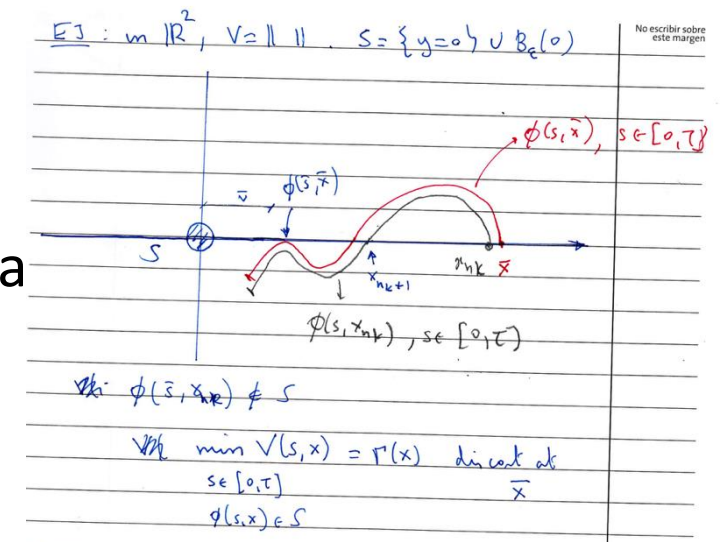 EJ : in ℝ², V = || || . S = {y=0} ∪ B_ε(0)
No escribir sobre
este margen
φ(s, x̄), s ∈ [0,τ]
v̄
φ(s̄, x̄)
S
x_{nk+1}
x_{nk} x̄
a
φ(s, x_{nk}), s ∈ [0,τ]
φ(s̄, x_{nk}) ∉ S
min V(s,x) = Γ(x) discont at
s ∈ [0,τ] x̄
φ(s,x) ∈ S